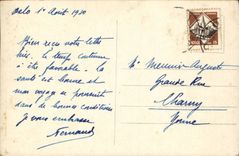 Oslo 1er Août 1930
Bien reçu votre lettre
hier. Le temps continue
à être favorable. La
santé est bonne et
mon voyage se poursuit
dans de bonnes conditions
Je vous embrasse
Fernand
Mr Meunier Auguste
Grande Rue
Charny
Yonne